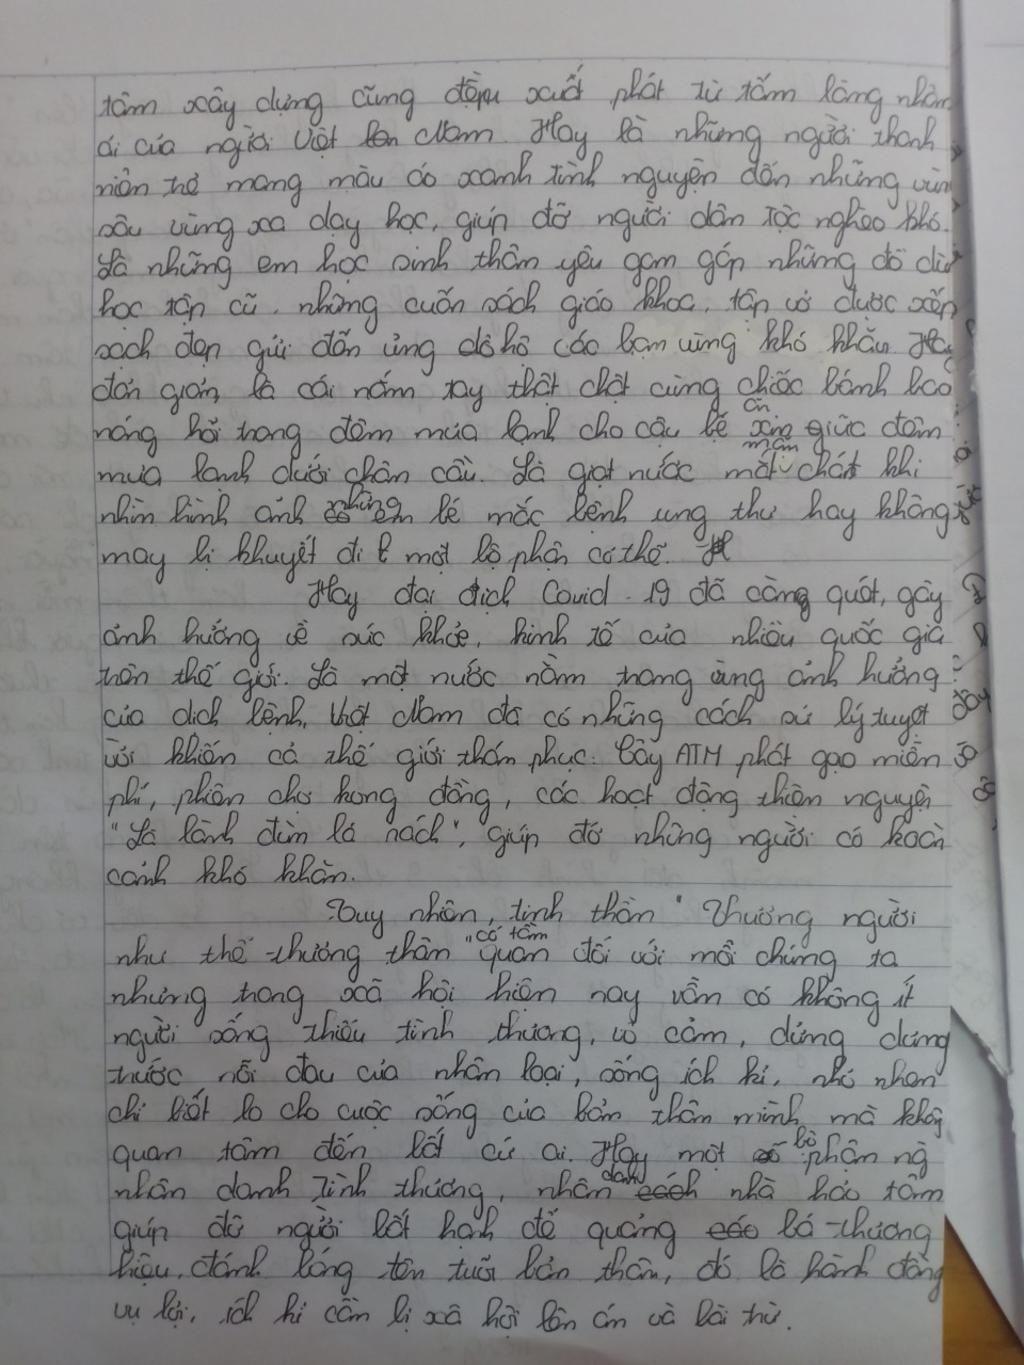 tâm xây dựng cũng đều xuất phát từ tấm lòng nhân
ái của người Việt Nam. Hay là những người thanh
niên trẻ mang màu áo xanh tình nguyện đến những vùn
sâu vùng xa dạy học, giúp đỡ người dân tộc nghèo khó.
Là những em học sinh thân yêu gom góp những đồ dù
học tập cũ, những cuốn sách giáo khoa, tập vở được xếp
sạch đẹp gửi đến ủng hộ các bạn vùng khó khăn. Hay
đơn giản là cái nắm tay thật chặt cùng chiếc bánh bao
nóng hổi trong đêm mưa lạnh cho cậu bé ăn xin giữa đêm
mưa lạnh dưới chân cầu. Là giọt nước mắt mặn chát khi
nhìn hình ảnh những em bé mắc bệnh ung thư hay không
may bị khuyết đi một bộ phận cơ thể.
Hay đại dịch Covid - 19 đã càng quát, gây
ảnh hưởng về sức khỏe, kinh tế của nhiều quốc gia
trên thế giới. Là một nước nằm trong vùng ảnh hưởng
của dịch bệnh, Việt Nam đã có những cách xử lý tuyệt
vời khiến cả thế giới thán phục. Cây ATM phát gạo miễn
phí, phiên chợ không đồng, các hoạt động thiện nguyện
"Lá lành đùm lá rách", giúp đỡ những người có hoàn
cảnh khó khăn.
Tuy nhiên, tinh thần "Thương người
như thể thương thân" có tầm quan đối với mỗi chúng ta
nhưng trong xã hội hiện nay vẫn có không ít
người sống thiếu tình thương, vô cảm, dửng dưng
trước nỗi đau của nhân loại, sống ích kỉ, nhỏ nhen
chỉ biết lo cho cuộc sống của bản thân mình mà không
quan tâm đến bất cứ ai. Hay một bộ phận ng
nhân danh tình thương, nhân danh nhà hảo tâm
giúp đỡ người bất hạnh để quảng bá thương
hiệu, đánh bóng tên tuổi bản thân, đó là hành động
vụ lợi, ích kỉ cần bị xã hội lên án và bài trừ.